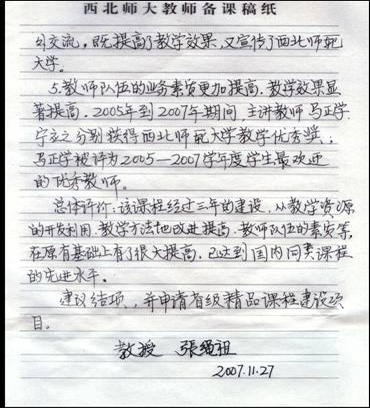 西北师大教师备课稿纸
与交流，既提高了教学效果，又宣传了西北师范
大学。
5.教师队伍的业务素质更加提高，教学效果显
著提高，2005年到2007年期间，主讲教师马正学、
宁立之分别获得西北师范大学教学优秀奖；
马正学被评为2005—2007学年度学生最欢迎
的优秀教师。
总体评价：该课程经过三年的建设，从教学资源
的开发利用、教学方法地改进提高、教师队伍的素字等，
在原有基础上有了很大提高，已达到国内同类课程
的先进水平。
建议结项，并申请省级精品课程建设项
目。
教授 張绍祖
2007.11.27